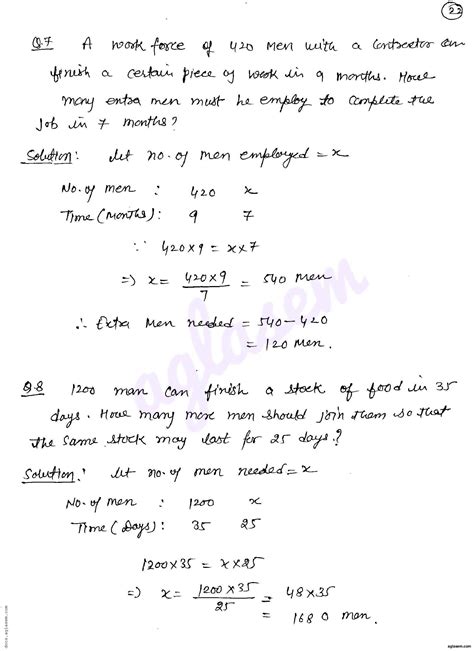 22
Q.7 A work force of 420 men with a contractor can
finish a certain piece of work in 9 months. How
many extra men must he employ to complete the
job in 7 months?
Solution: Let no. of men employed = x
No. of men : 420 x
Time (Months): 9 7
∵ 420×9 = x×7
⇒ x = 420×9/7 = 540 Men
∴ Extra Men needed = 540 - 420
= 120 Men.
Q.8 1200 man can finish a stock of food in 35
days. How many more men should join them so that
the same stock may last for 25 days.?
Solution: Let no. of men needed = x
No. of men : 1200 x
Time (Days): 35 25
1200×35 = x×25
⇒ x = 1200×35/25 = 48×35
= 1680 men.
aglasem
docs.aglasem.com
aglasem.com